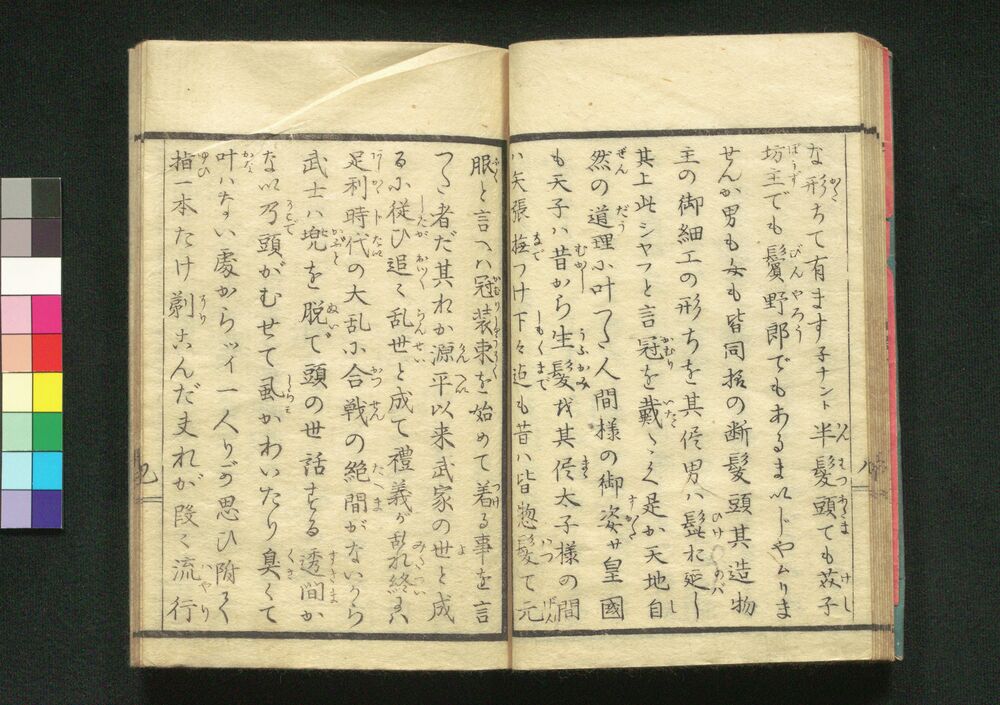 な形ちて有ます子ナント半髪頭ても芥子
坊主でも鬢野郎でもあるまいじやムりま
せんか男も女も皆同揃の断髪頭其造物
主の御細工の形ちを其侭男ハ髭を延し
其上此シヤツと言冠を戴く足か天地自
然の道理に叶つた人間様の御姿サ皇國
も天子ハ昔から生髪で其侭太子様の間
ハ矢張撫つけ下々迄も昔ハ皆惣髪で元
服と言へハ冠装束を始めて着る事を言
つた者だ其れか源平以来武家の世と成
るに従ひ追々乱世と成て禮義が乱れ終には
足利時代の大乱に合戦の絶間がないから
武士ハ兜を脱で頭の世話する透間か
ない乃頭がむせて虱かわいたり臭くて
叶ハない處からツイ一人りが思ひ附く
指一本たけ剃こんだ夫れが段々流行